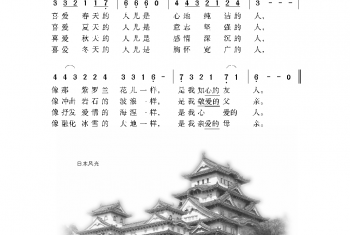 3 3 2 1 1 1 7 | 6 6 6 0 | 3 3 2 1 2 3 1 | 7 — — 0 |
喜爱 春天的 人儿是 心地 纯洁 的人,
喜爱 夏天的 人儿是 意志 坚强 的人,
喜爱 秋天的 人儿是 感情 深沉 的人,
喜爱 冬天的 人儿是 胸怀 宽广 的人,
4 4 3 2 2 4 | 3 3 2 1 6 1
像那 紫罗兰 花儿一样, 是我 知心的 友人。
像冲击 岩石的 波浪一样, 是我 敬爱的 父亲。
像抒发 爱情的 海涅一样, 是我 心爱的人。
像融化 冰雪的 大地一样, 是我 亲爱的 母亲。
日本风光